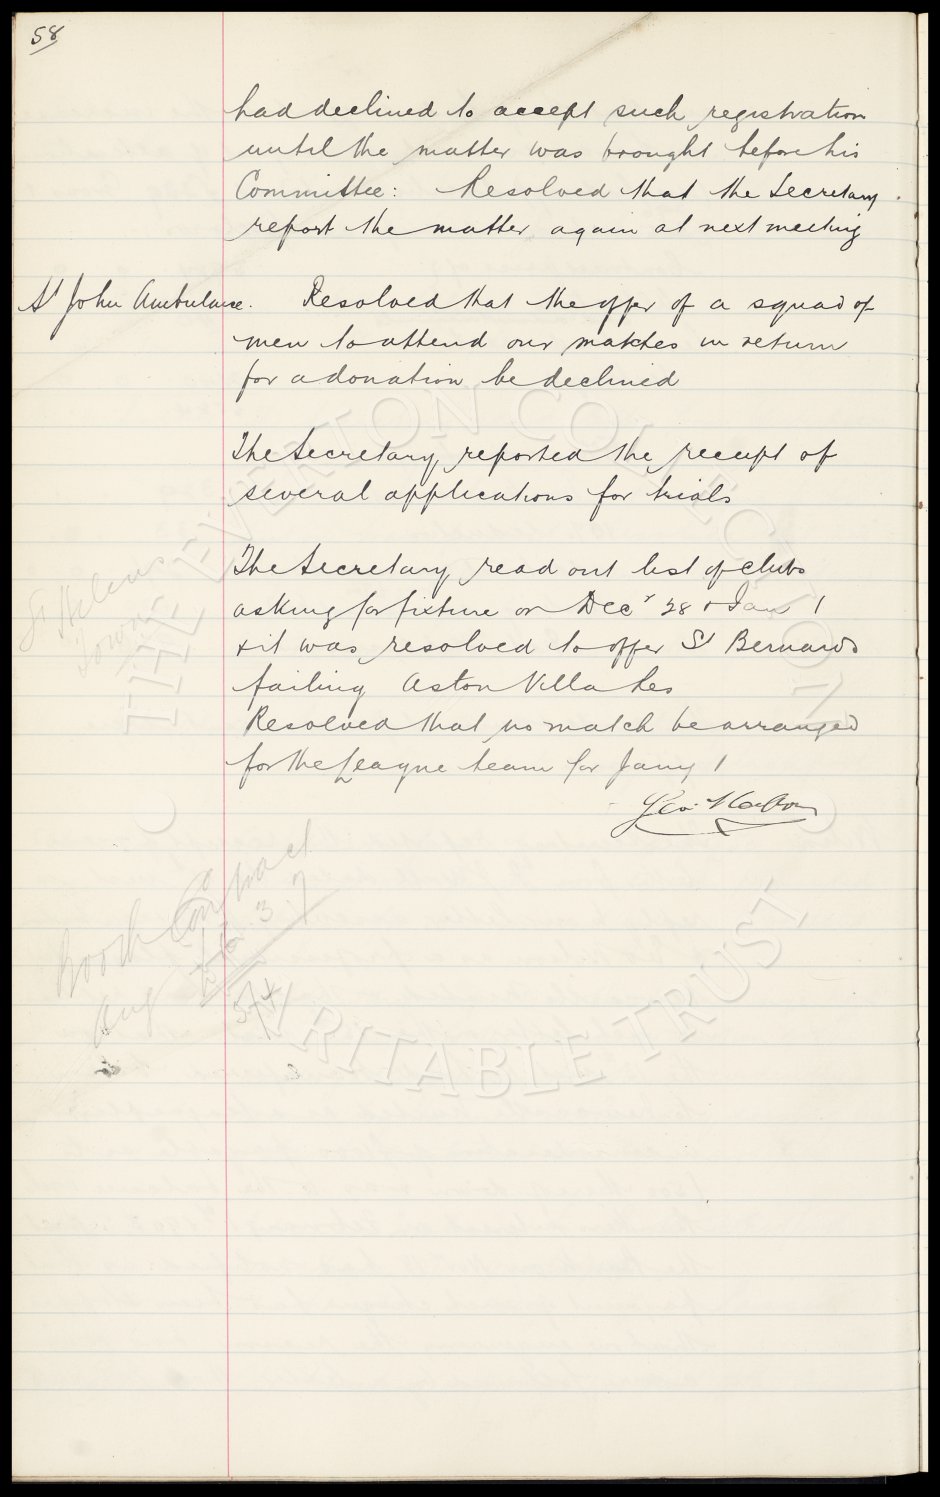 58
had declined to accept such registration
until the matter was brought before his
Committee: Resolved that the Secretary
report the matter again at next meeting
St John Ambulance. Resolved that the offer of a squad of
men to attend our matches in return
for a donation be declined
The Secretary reported the receipt of
several applications for trials
The Secretary read out list of clubs
asking for fixture on Decr 28 & Jan 1
& it was resolved to offer St Bernards
failing Aston Villa Res
Resolved that no match be arranged
for the League team for Jany 1
Geo. Mahon
St Helens
Town
Booth Contract
Aug
THE EVERTON COLLECTION
CHARITABLE TRUST